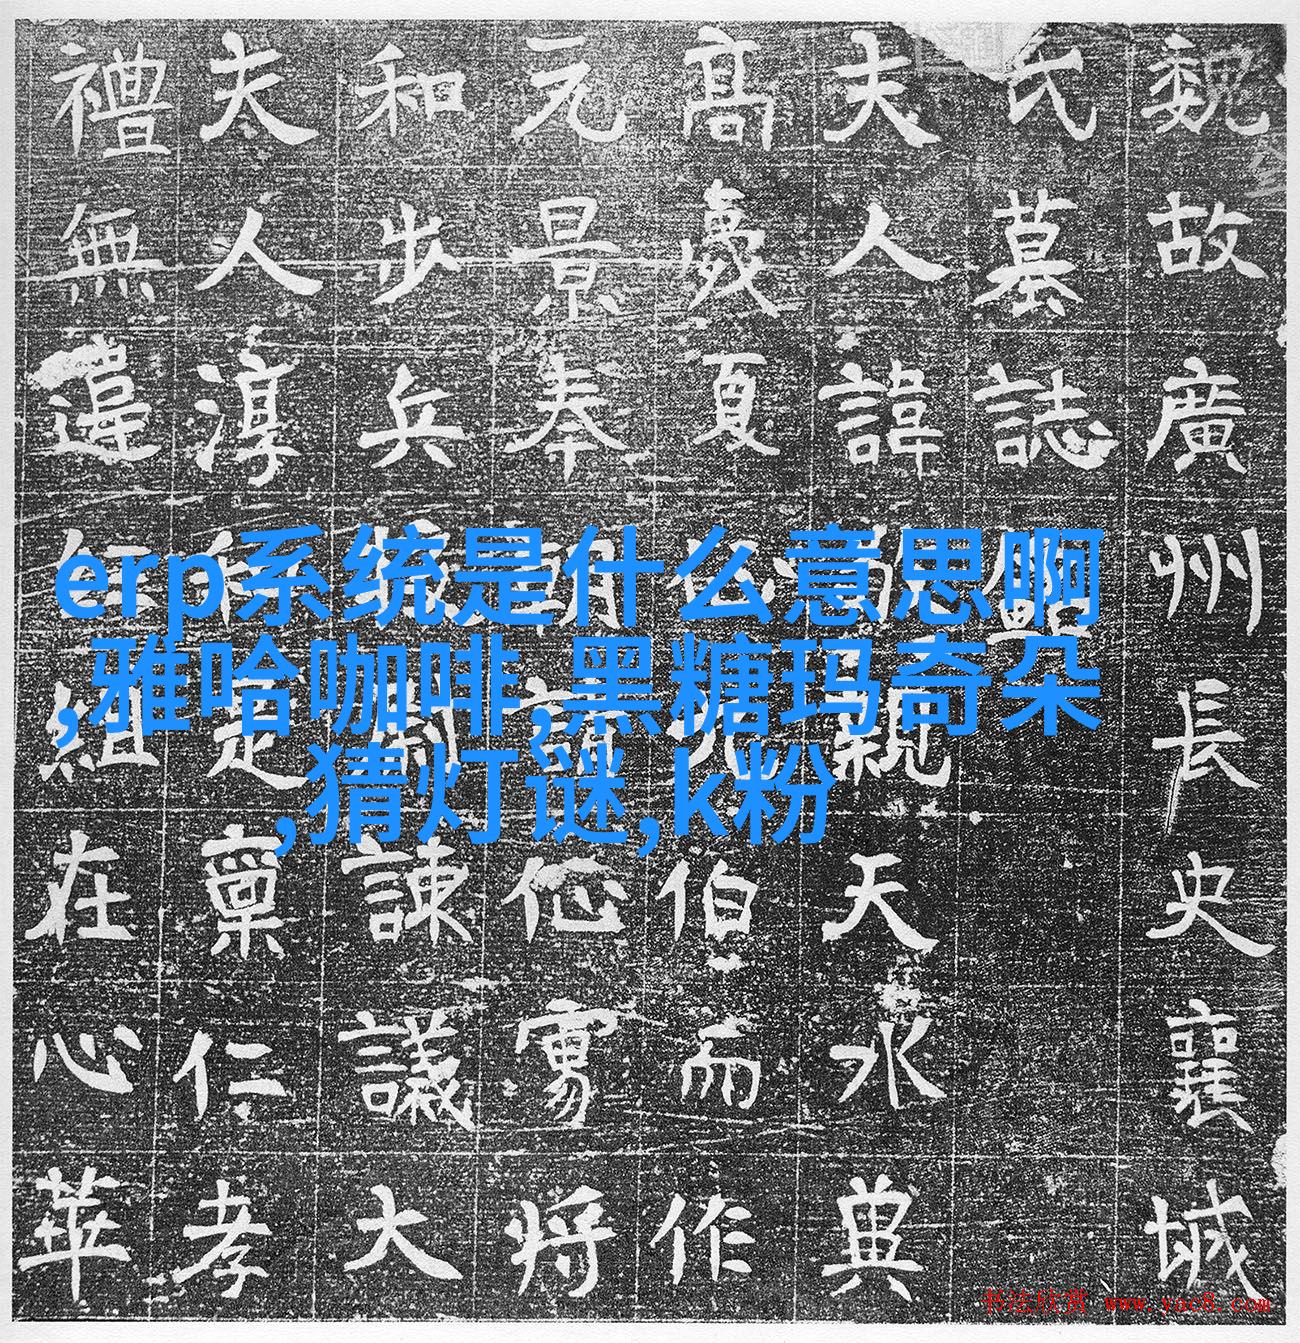 魏故廣州長史襄城
氏墓誌
夫人諱親天水
高夏伯而作
元景奉朝請将
和步兵尉諫議大
夫人淳定稟仁孝
禮無違組在心華
erp系统是什么意思啊
,雅哈咖啡,黑糖玛奇朵
,猜灯谜,k粉
书法欣赏 www.yac8.com